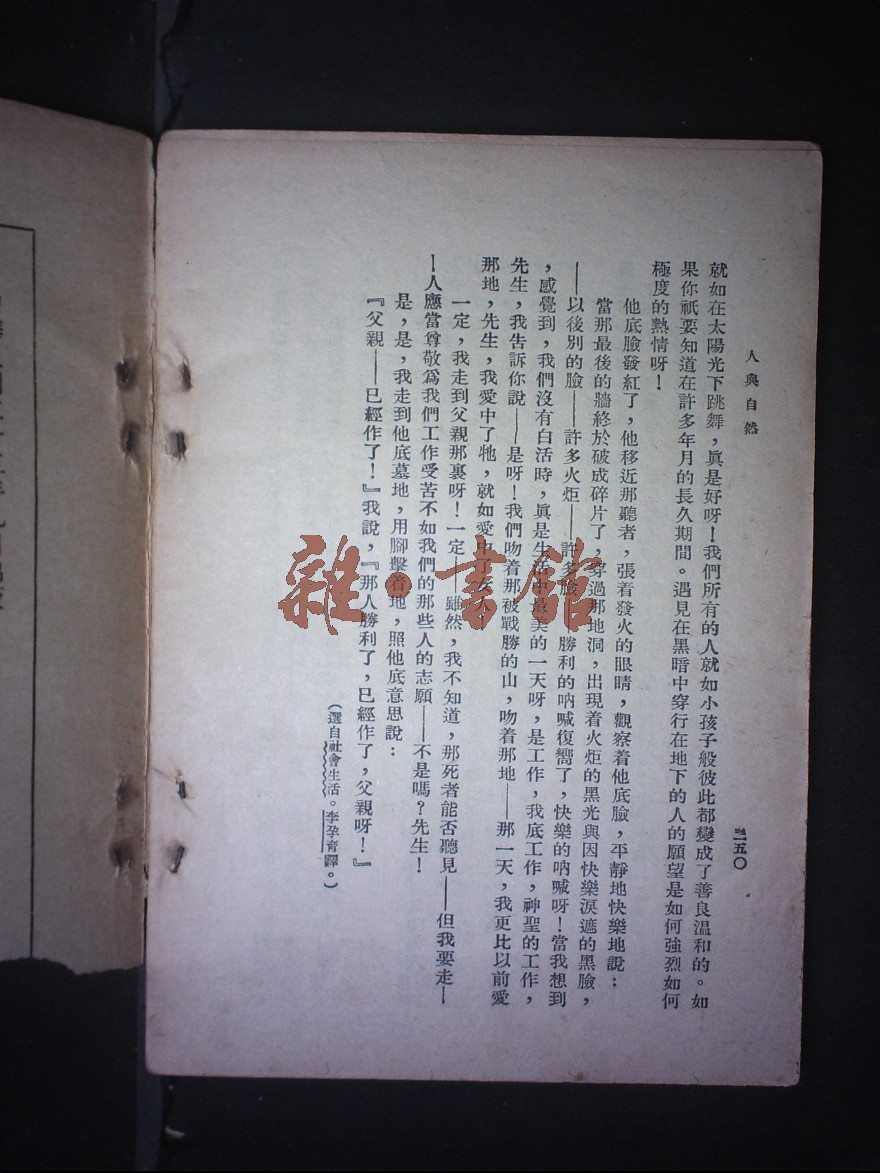 人與自然
一五〇
就如在太陽光下跳舞，眞是好呀！我們所有的人就如小孩子般彼此都變成了善良温和的。如
果你祇要知道在許多年月的長久期間。遇見在黑暗中穿行在地下的人的願望是如何強烈如何
極度的熱情呀！
他底臉發紅了，他移近那聽者，張着發火的眼睛，觀察着他底臉，平靜地快樂地說：
當那最後的牆終於破成碎片了，穿過那地洞，出現着火炬的黑光與因快樂淚遮的黑臉，
——以後別的臉——許多火炬——許多臉——勝利的吶喊復嚮了，快樂的吶喊呀！當我想到
，感覺到，我們沒有白活時，眞是生活中最美的一天呀，是工作，我底工作，神聖的工作，
先生，我告訴你說——是呀！我們吻着那被戰勝的山，吻着那地——那一天，我更比以前愛
那地，先生，我愛中了牠，就如愛中了女人！
一定，我走到父親那裏呀！一定——雖然，我不知道，那死者能否聽見——但我要走—
—人應當尊敬爲我們工作受苦不如我們的那些人的志願——不是嗎？先生！
是，是，我走到他底墓地，用腳擊着地，照他底意思說：
『父親——已經作了！』我說，『那人勝利了，已經作了，父親呀！』
（選自社會生活。李孕育譯。）
雜·書館